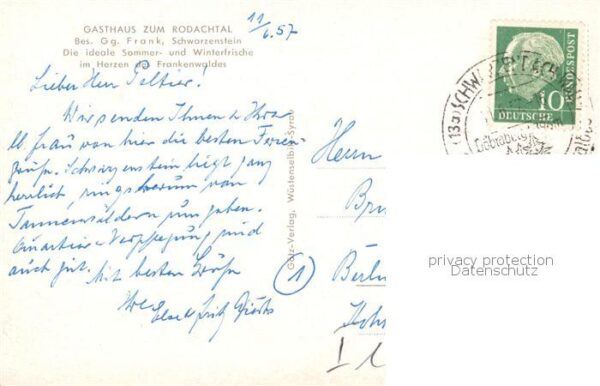 GASTHAUS ZUM RODACHTAL
Bes. Gg. Frank, Schwarzenstein
Die ideale Sommer- und Winterfrische
im Herzen des Frankenwaldes
11/6.57
Lieber Herr Peltier!
Wir senden Ihnen & Ihrer
Frau von hier die besten
grüße. Schwarzenstein liegt ganz
herrlich, ringsherum von
Tannenwäldern umgeben.
Quartier & Verpflegung sind
auch gut. Mit besten Grüßen
Ihre
Fritz
Götz-Verlag, Wüstenselbitz-Syrau
Herrn
Berlin
1
DEUTSCHE
BUNDESPOST
10
(13a) SCHWARZENBACH
privacy protection
Datenschutz